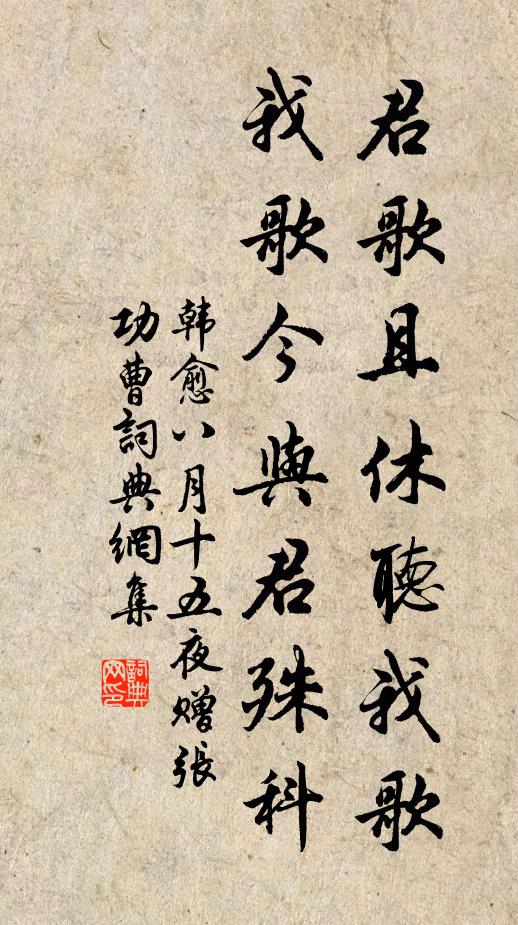 君歌且休聽我歌
我歌今與君殊科
韩愈八月十五夜赠張
功曹詞典網集
詞典
网印